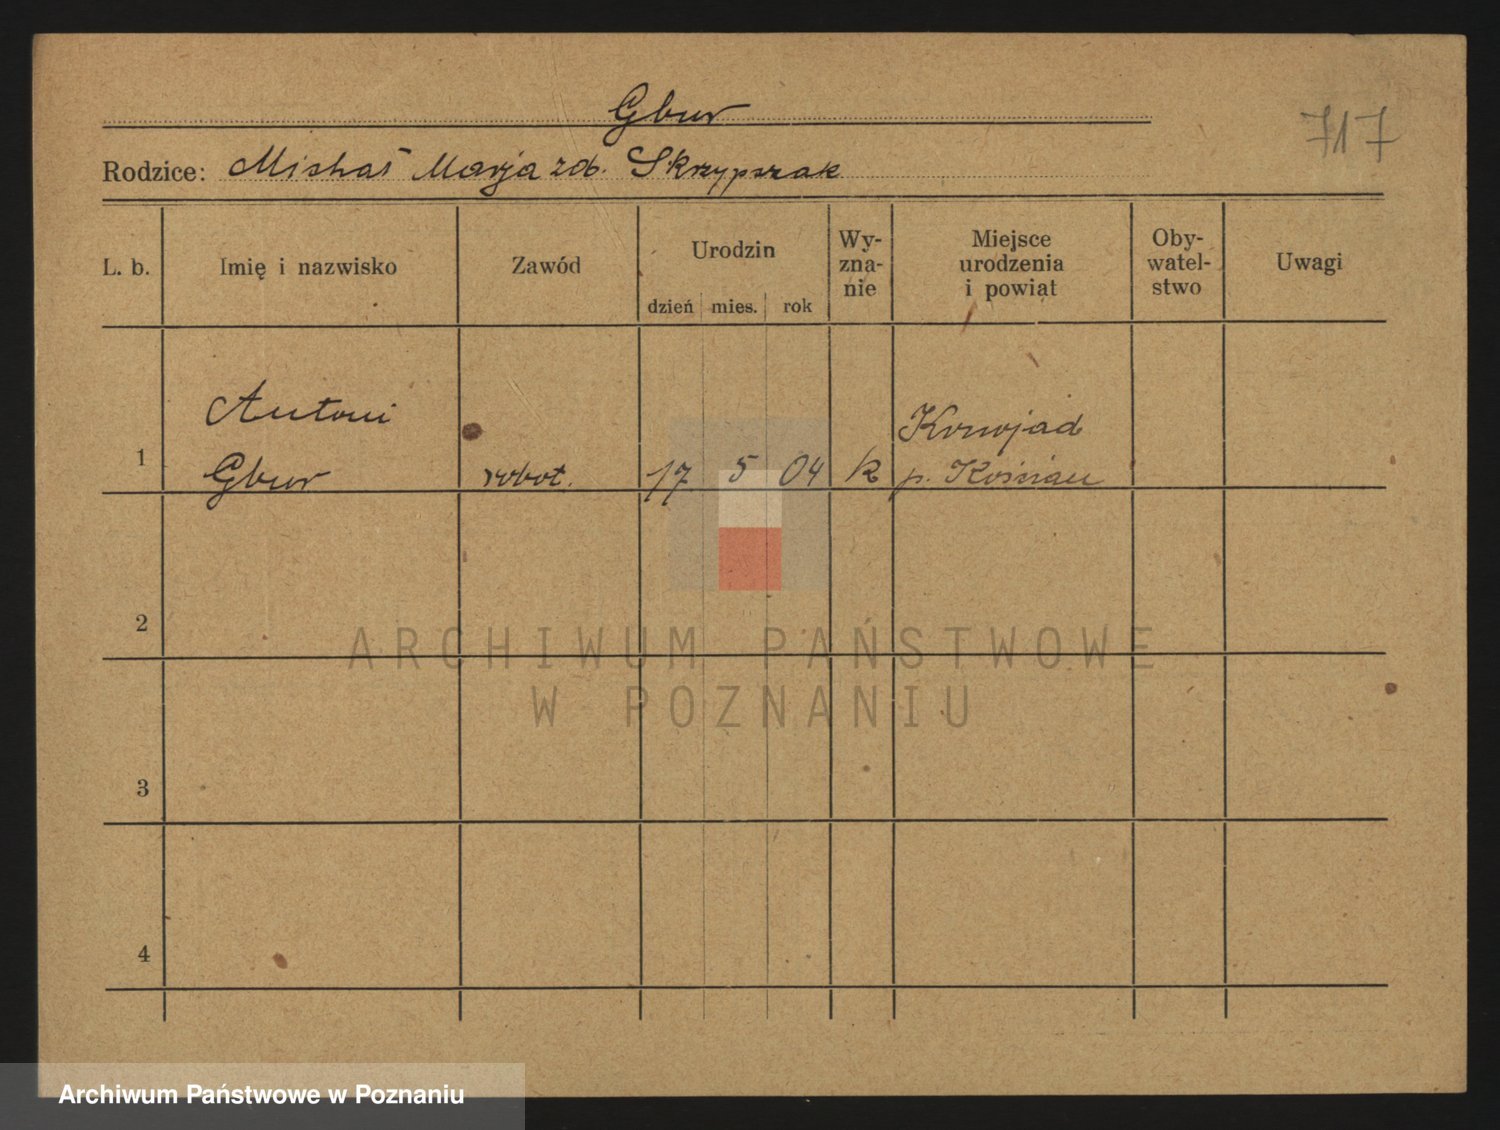 Gbur
717
Rodzice: Michał Marja zd. Skrzypszak
L. b.
Imię i nazwisko
Zawód
Urodzin
dzień mies. rok
Wy-
zna-
nie
Miejsce
urodzenia
i powiat
Oby-
watel-
stwo
Uwagi
1
Antoni
Gbur
robot.
17 5 04
k
Konojad
p. Kościan
2
3
4
ARCHIWUM PAŃSTWOWE
W POZNANIU
Archiwum Państwowe w Poznaniu